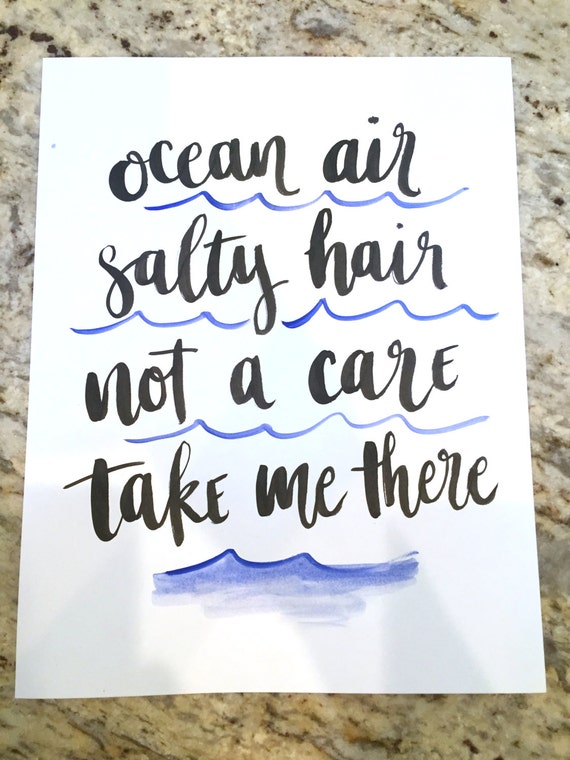 ocean air
salty hair
not a care
take me there